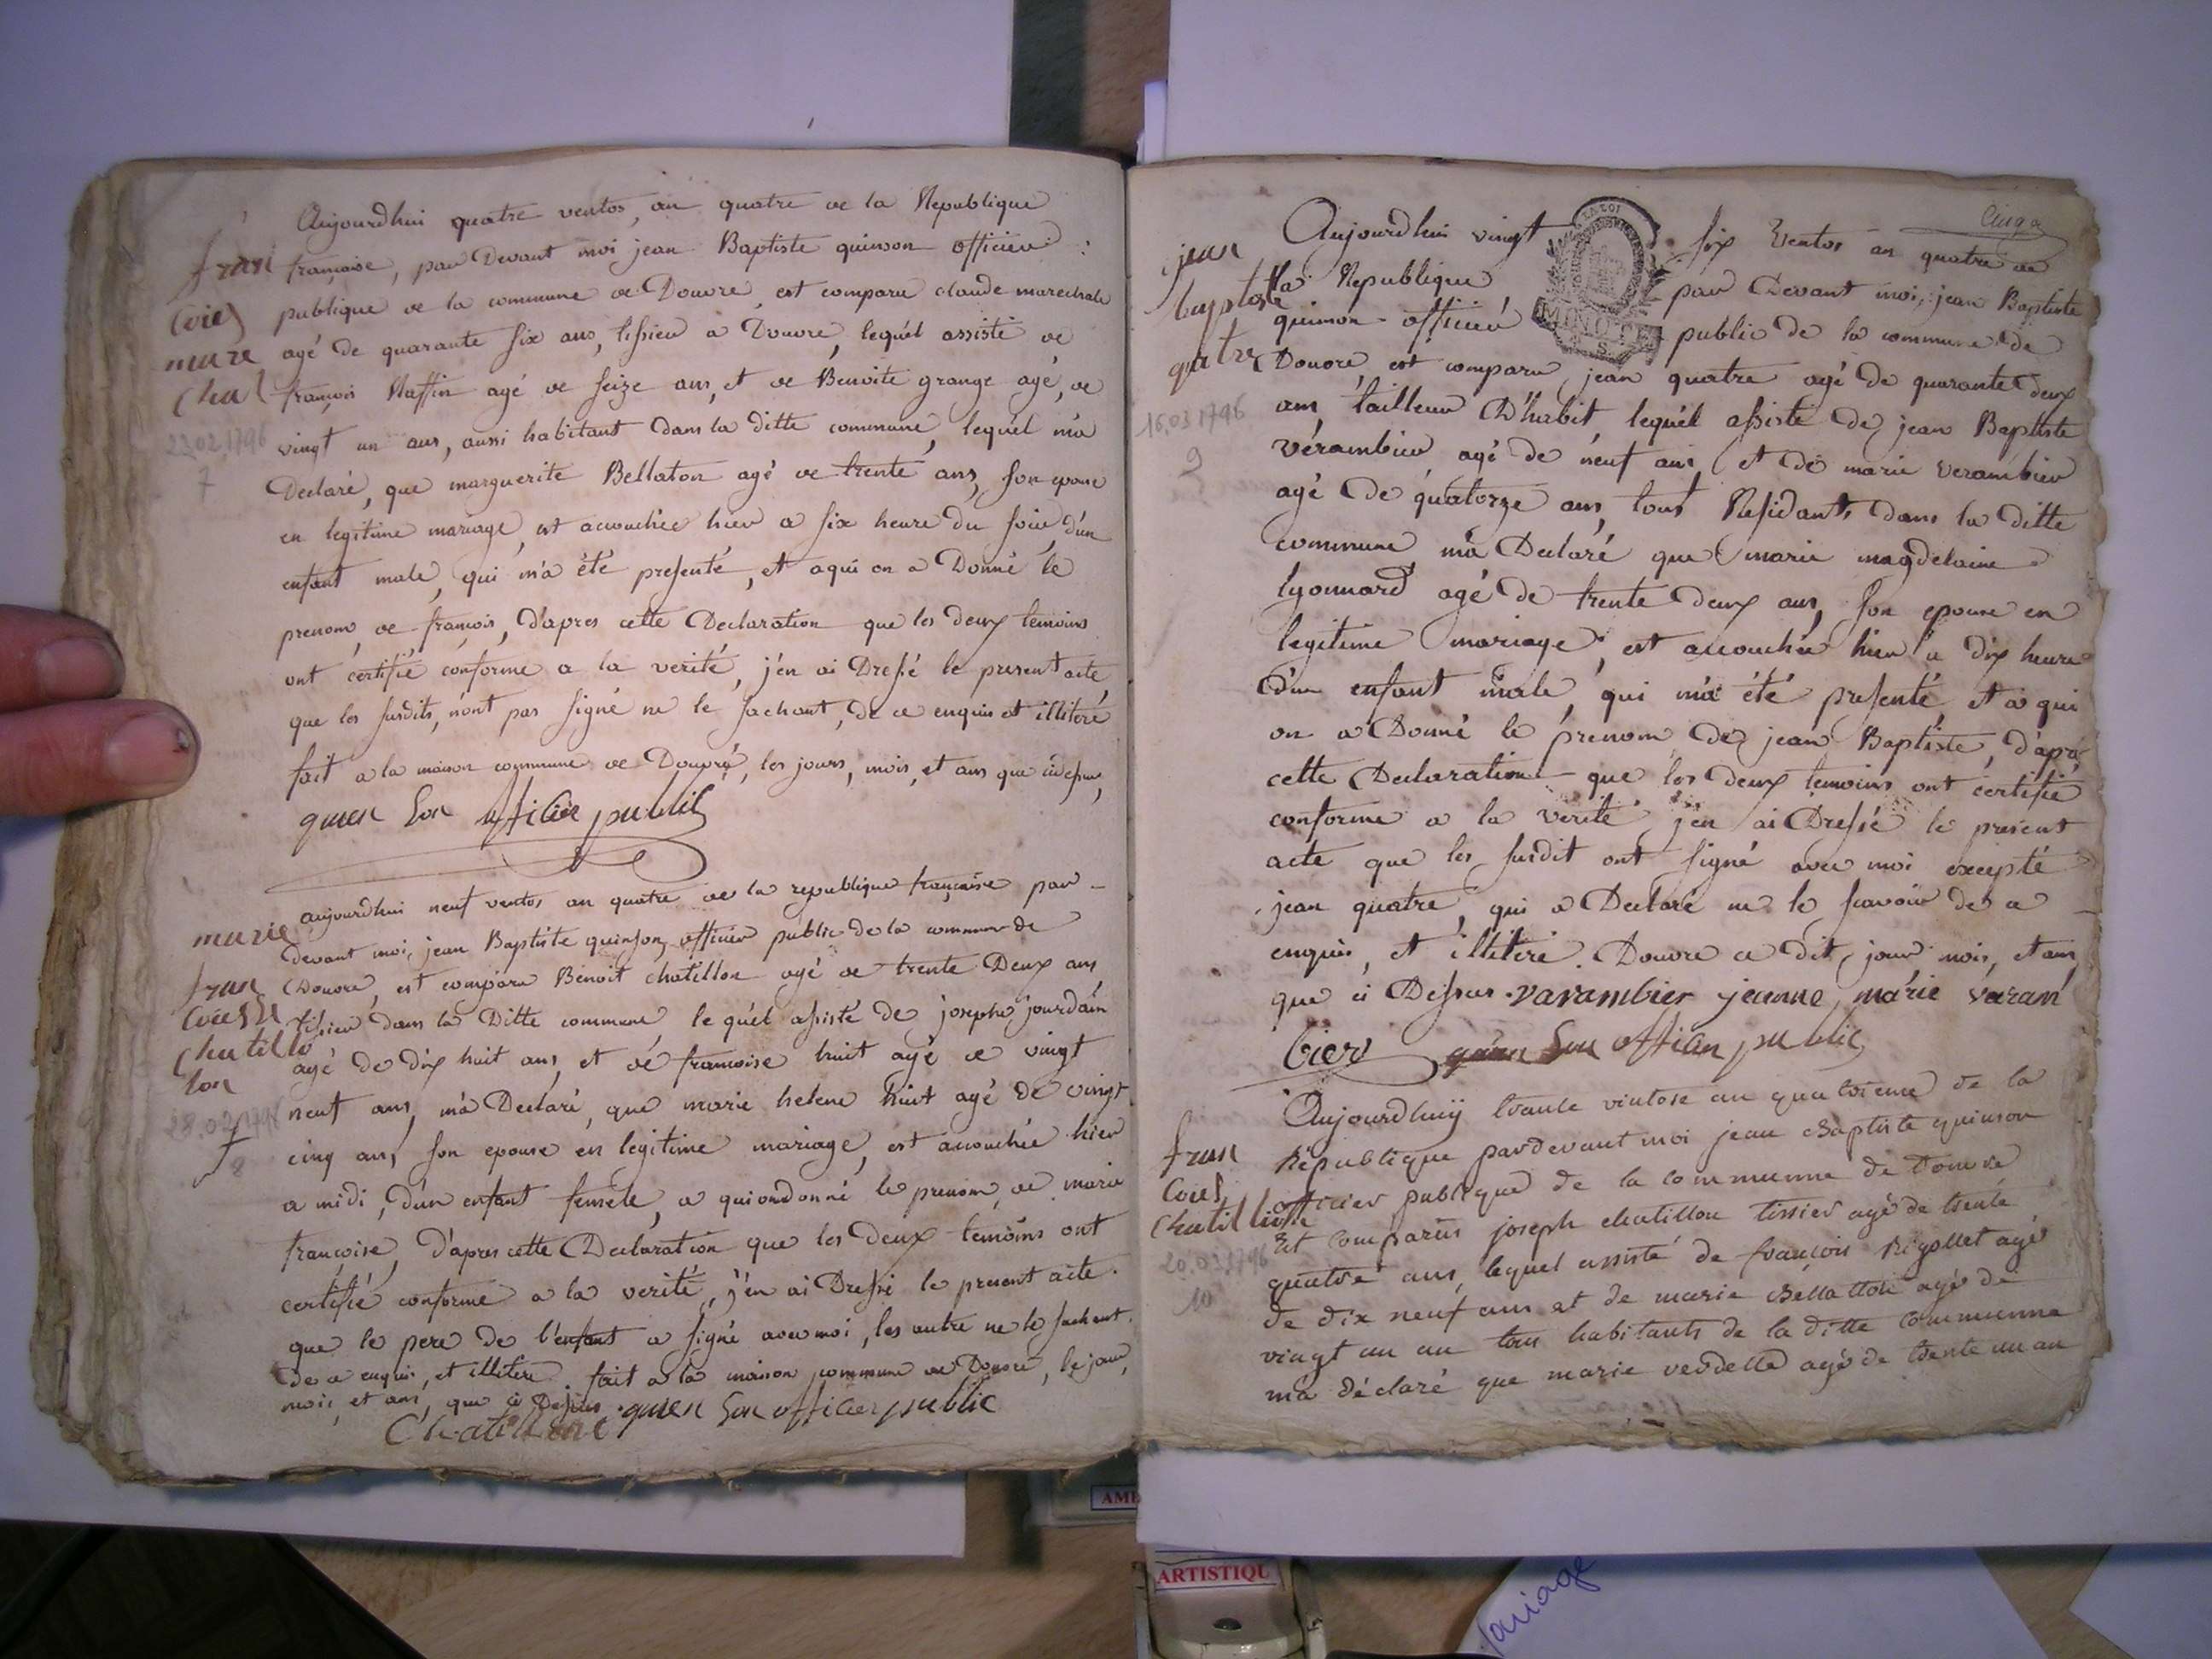 Aujourdhui quatre ventos, an quatre de la Republique
françoise, par Devant moi jean Baptiste quinson officier
publique de la commune de Douvre, est comparu claude marechale
agé de quarante six ans, tissier a Douvre, lequél assisté de
françois Raffin agé de seize ans, et de Benoite grange agé, de
vingt un ans, aussi habitant Dans la ditte commune, lequél m'a
Declaré, que marguerite Bellaton agé de trente ans, son epouse
en legitime mariage, est accouchée hier a six heure du soir, d'un
enfant male, qui m'a été presenté, et a qui on a Donné le
prenom de françois, d'apres cette Declaration que les deux temoins
ont certifié conforme a la verité, j'en ai Dressé le present acte
que les susdits, n'ont pas signé ne le sachant, de ce enquis et illiteré
fait a la maison commune de Douvre, les jours, mois, et ans que dessus,
quen son officier public
fran
coies
mare
chal
23.02.1796
7
aujourdhui neuf ventos an quatre de la republique françoise par
devant moi, jean Baptiste quinson, officier public de la commune de
Douvre, est comparu Benoit chatillon agé de trente Deux ans
tissier dans la Ditte commune, le quél assisté de josephe jourdain
agé de dix huit ans, et de francoise huit agé de vingt
neuf ans, m'a Declaré, que marie helene huit agé de vingt
cinq ans, son epouse en legitime mariage, est accouchée hier
a midi, d'un enfant femele, a qui on donné le prenom de marie
françoise, d'apres cette Declaration que les deux temoins ont
certifié conforme a la verité, j'en ai Dressé le present acte
que le pere de l'enfant a signé avec moi, les autre ne le sachant.
de ce enquis, et illitere. fait a la maison commune de Douvre, le jour,
mois, et ans, que ci Dessus. quen son officier public
Chatillone
marie
fran
coiesse
chatil
lon
28.02.1796
8
Cinq
Aujourdhui vingt six Ventos an quatre de
la Republique par Devant moi, jean Baptiste
quinson officier public de la commune de
Douvre est comparu jean quatre agé de quarante deux
ans, tailleur D'habit, lequél assisté de jean Baptiste
verambier agé de neuf ans et de marie verambier
agé de quatorze ans, tous Residants dans la ditte
commune m'a Declaré que marie magdelaine
lyonnard agé de trente deux ans, son epouse en
legitime mariage, est accouchée hier a dix heure
d'un enfant male, qui m'a été presenté, et a qui
on a Donné le prenom de jean Baptiste, d'après
cette Declaration que les deux temoins ont certifié
conforme a la verité j'en ai Dressé le present
acte que les susdit ont signé avec moi excepté
jean quatre, qui a Declaré ne le savoir de ce
enquis, et illiteré. Douvre ce dit jour mois, et ans,
que ci Dessus. varambier jeanne marie varam
bier quen son officier public
jean
baptiste
quatre
16.03.1796
9
MINUTE
LA LOI
Aujourdhuij trante vintose an quatrieme de la
République pardevant moi jean Baptiste quinson
officier publique de la commune de Douvre
Et comparus joseph chatillon tissier agé de trente
quatre ans, lequel assisté de françois Rigollet agé
de dix neuf ans et de marie Bellatton agé de
vingt un an tous habitants de la ditte commune
ma déclaré que marie verdelle agé de trente un an
fran
coies
chatil lion
20.03.1796
10
AM
ARTISTIQU
mariage